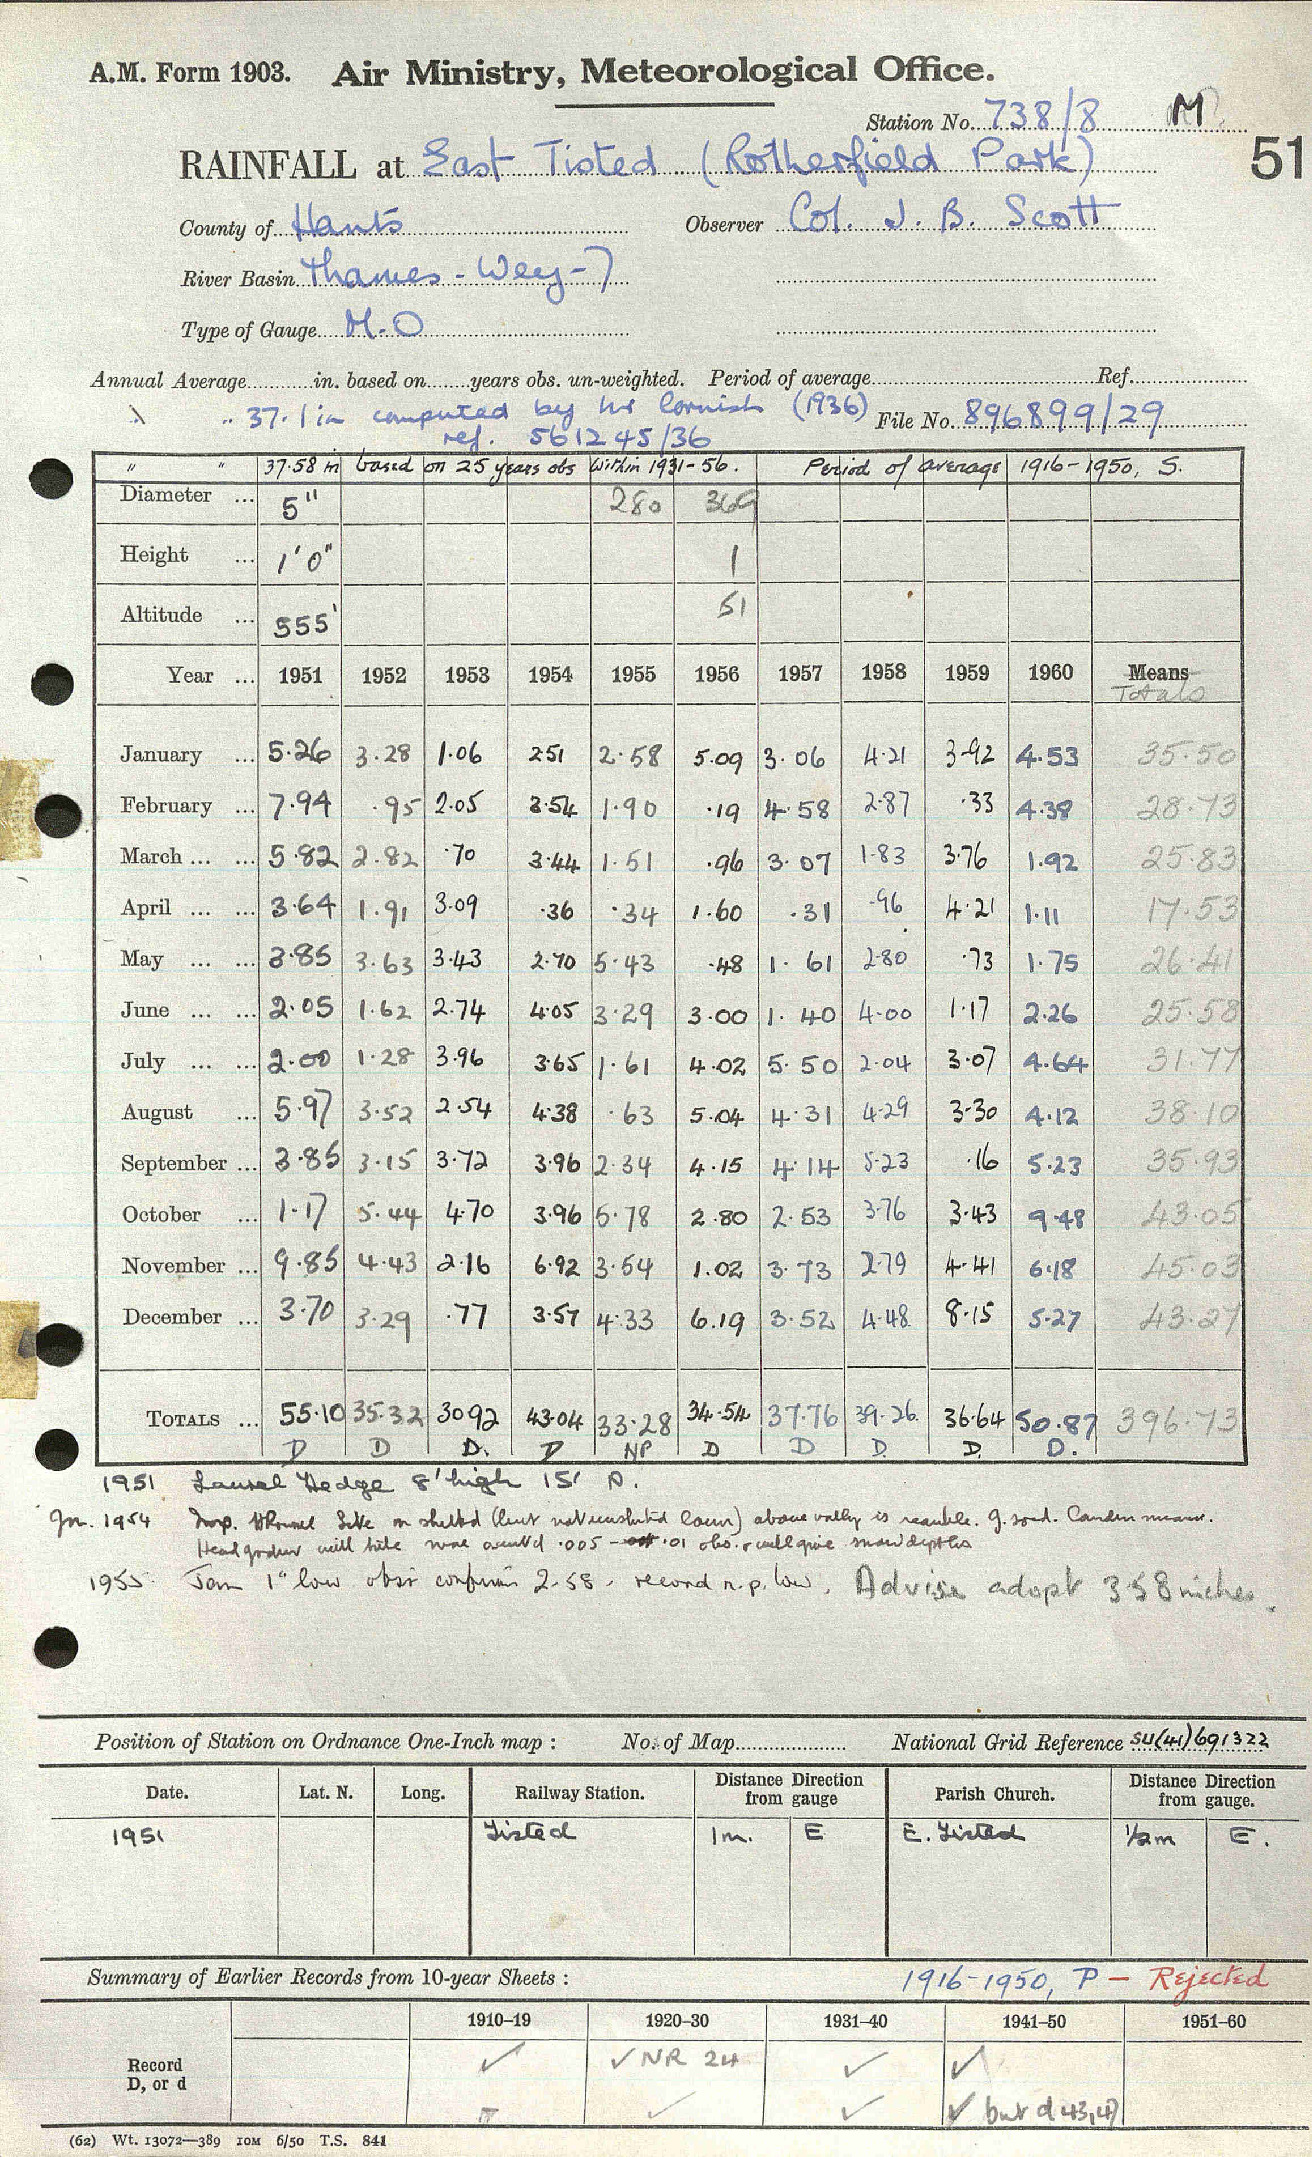 A.M. Form 1903. Air Ministry, Meteorological Office.
Station No. 738/8 M
51
RAINFALL at East Tisted (Rotherfield Park)
County of Hants Observer Col. J. B. Scott
River Basin Thames - Wey - 7
Type of Gauge M.O
Annual Average in. based on years obs. un-weighted. Period of average Ref.
" 37.1 in computed by Mr Cornish (1936) File No. 896899/29
ref. 561245/36
" " 37.58 in based on 25 years obs within 1931-56. Period of average 1916-1950, S.
Diameter ... 5" 280 369
Height ... 1'0" 1
Altitude ... 555' 51
Year ... 1951 1952 1953 1954 1955 1956 1957 1958 1959 1960 Means
Totals
January ... 5.26 3.28 1.06 2.51 2.58 5.09 3.06 4.21 3.92 4.53 35.50
February ... 7.94 .95 2.05 3.54 1.90 .19 4.58 2.87 .33 4.38 28.73
March ... ... 5.82 2.82 .70 3.44 1.51 .96 3.07 1.83 3.76 1.92 25.83
April ... ... 3.64 1.91 3.09 .36 .34 1.60 .31 .96 4.21 1.11 17.53
May ... ... 3.85 3.63 3.43 2.70 5.43 .48 1.61 2.80 .73 1.75 26.41
June ... ... 2.05 1.62 2.74 4.05 3.29 3.00 1.40 4.00 1.17 2.26 25.58
July ... ... 2.00 1.28 3.96 3.65 1.61 4.02 5.50 2.04 3.07 4.64 31.77
August ... 5.97 3.52 2.54 4.38 .63 5.04 4.31 4.29 3.30 4.12 38.10
September ... 3.85 3.15 3.72 3.96 2.34 4.15 4.14 5.23 .16 5.23 35.93
October ... 1.17 5.44 4.70 3.96 5.78 2.80 2.53 3.76 3.43 9.48 43.05
November ... 9.85 4.43 2.16 6.92 3.54 1.02 3.73 2.79 4.41 6.18 45.03
December ... 3.70 3.29 .77 3.57 4.33 6.19 3.52 4.48 8.15 5.27 43.27
TOTALS ... 55.10 35.32 30.92 43.04 33.28 34.54 37.76 39.26 36.64 50.87 396.73
D D D. D NP D D D. D. D.
1951 Laurel Hedge 8' high 15'
Jn. 1954 Insp. Site on valley is
Head will take .005 - .01 obs. & will give snow depths
1955 Jan 1" low obsr confirms 2.58. record n.p. low. Advise adopt 3.58 inches.
Position of Station on Ordnance One-Inch map : No. of Map National Grid Reference SU(41)691322
Date. Lat. N. Long. Railway Station. Distance from gauge Direction Parish Church. Distance from gauge. Direction
1951 Tisted 1m. E E. Tisted 1/2m E.
Summary of Earlier Records from 10-year Sheets : 1916-1950, P - Rejected
1910–19 1920–30 1931–40 1941–50 1951–60
Record ✓ ✓ NR 24 ✓ ✓
D, or d ✓ ✓ ✓ but d 43,47
(62) Wt. 13072—389 10M 6/50 T.S. 841